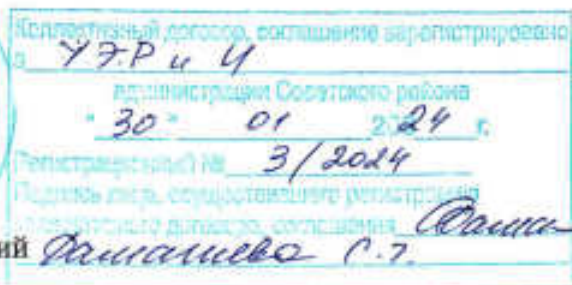 Коллективный договор, соглашение зарегистрировано
в УЭР и И
администрации Советского района
"30" 01 2024 г.
Регистрационный № 3/2024
Подпись лица, осуществившего регистрацию
коллективного договора, соглашения
ий С.Г.